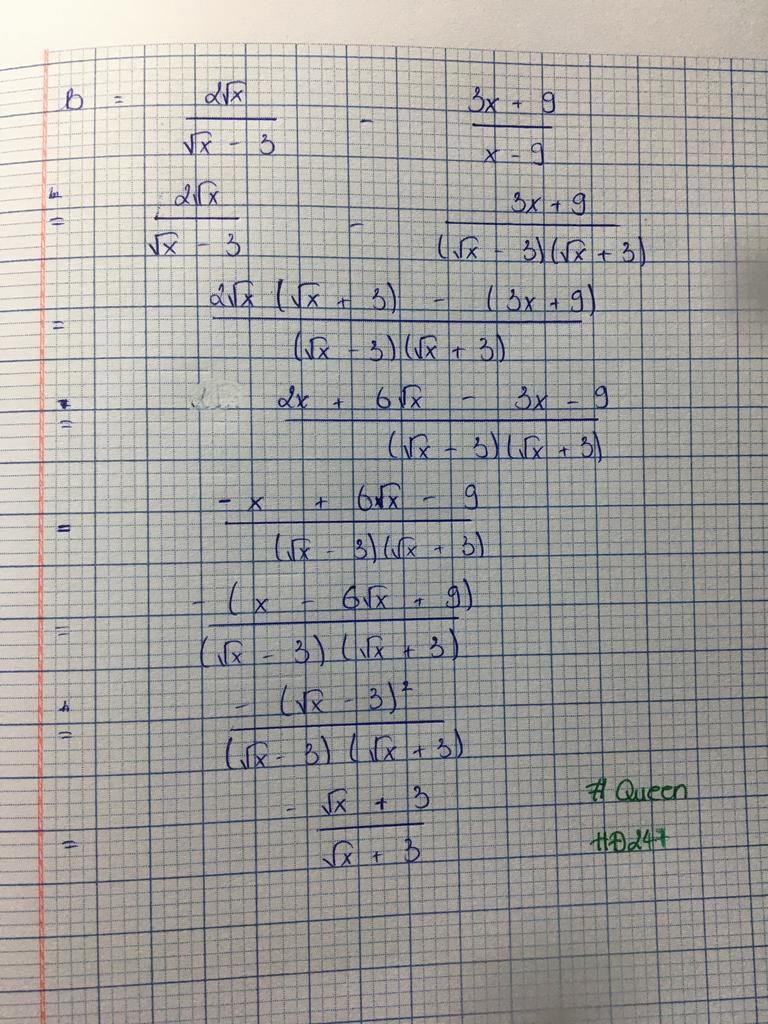 B = 2√x / (√x - 3) - (3x + 9) / (x - 9)
= 2√x / (√x - 3) - (3x + 9) / ((√x - 3)(√x + 3))
= (2√x (√x + 3) - (3x + 9)) / ((√x - 3)(√x + 3))
= (2x + 6√x - 3x - 9) / ((√x - 3)(√x + 3))
= (-x + 6√x - 9) / ((√x - 3)(√x + 3))
= -(x - 6√x + 9) / ((√x - 3)(√x + 3))
= -(√x - 3)² / ((√x - 3)(√x + 3))
= - (√x + 3) / (√x + 3)
# Queen
HĐ247